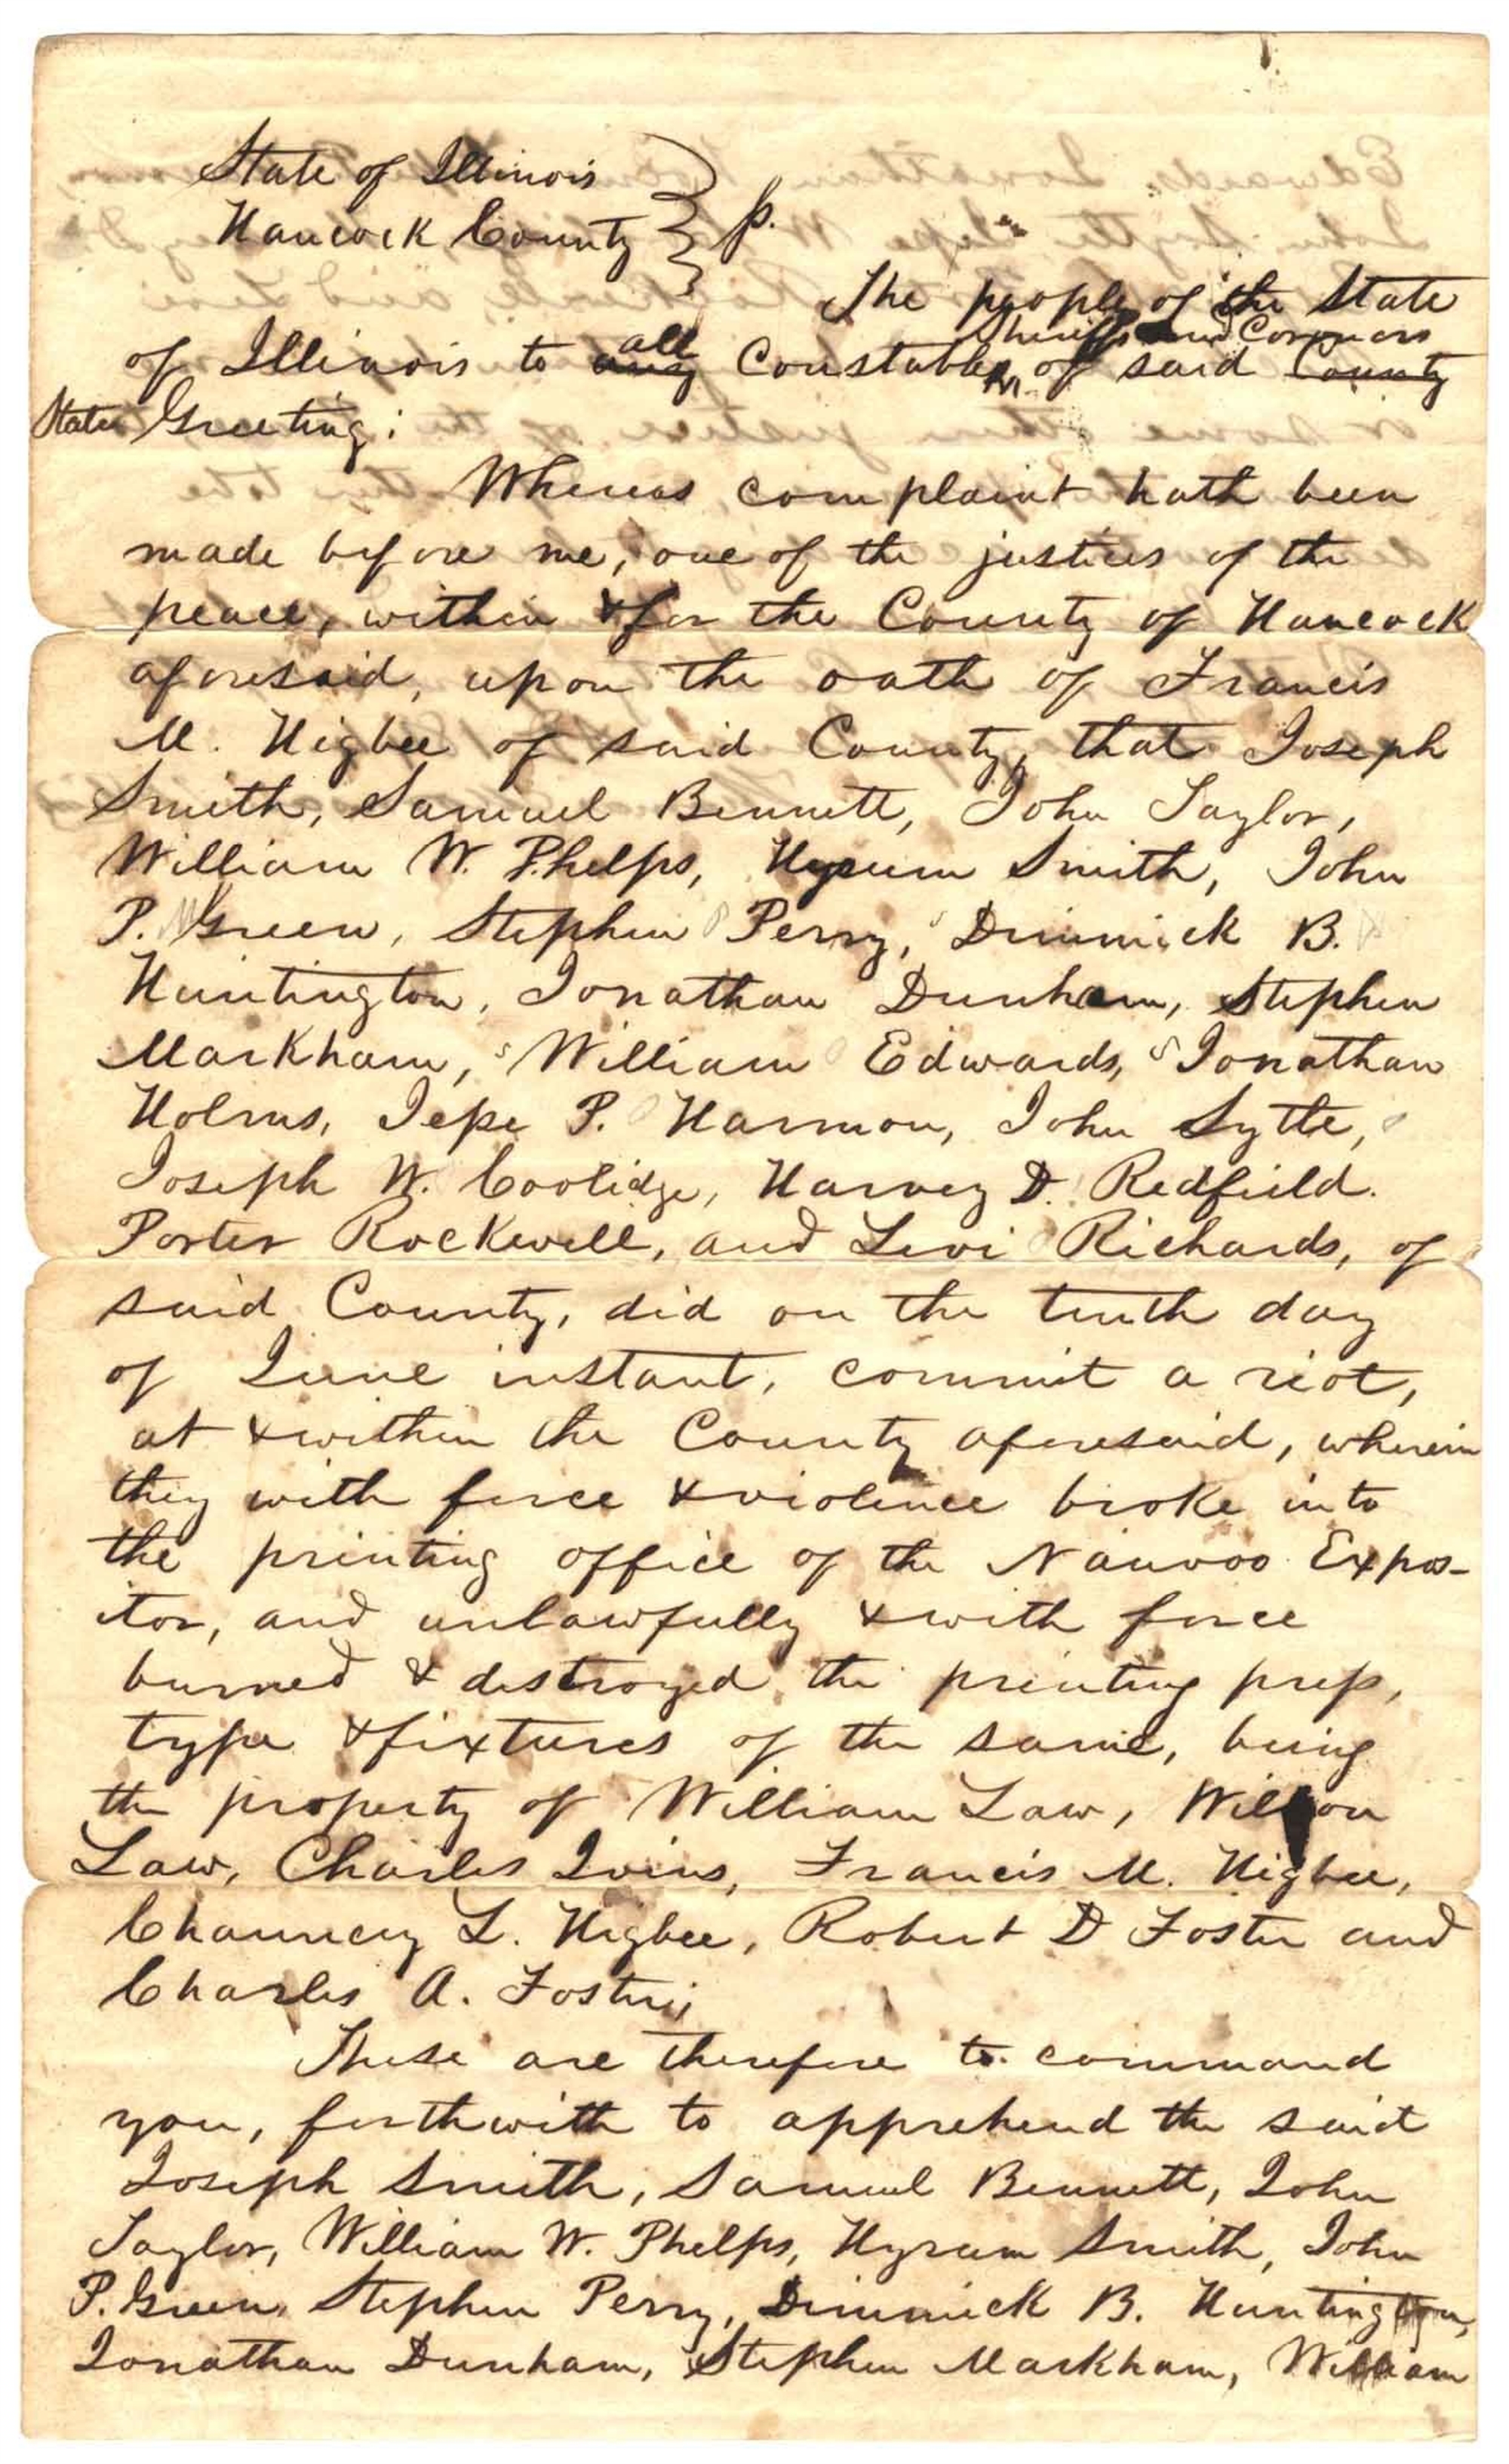 State of Illinois
Hancock County } ss.
The people of the State
of Illinois to any all Constables Sheriffs and Coroners of said County
State Greeting:
Whereas complaint hath been
made before me, one of the justices of the
peace, within & for the County of Hancock
aforesaid, upon the oath of Francis
M. Higbee of said County, that Joseph
Smith, Samuel Bennett, John Taylor,
William W. Phelps, Hyrum Smith, John
P. Green, Stephen Perry, Dimmick B.
Huntington, Jonathan Dunham, Stephen
Markham, William Edwards, Jonathan
Holmes, Jesse P. Harmon, John Lytle,
Joseph W. Coolidge, Harvey D. Redfield.
Porter Rockwell, and Levi Richards, of
said County, did on the tenth day
of June instant, commit a riot,
at & within the County aforesaid, wherein
they with force & violence broke into
the printing office of the Nauvoo Expos-
itor, and unlawfully & with force
burned & destroyed the printing press,
type & fixtures of the same, being
the property of William Law, Wilson
Law, Charles Ivins, Francis M. Higbee,
Chauncey L. Higbee, Robert D Foster and
Charles A. Foster;
These are therefore to command
you, forthwith to apprehend the said
Joseph Smith, Samuel Bennett, John
Taylor, William W. Phelps, Hyrum Smith, John
P. Green, Stephen Perry, Dimmick B. Huntington,
Jonathan Dunham, Stephen Markham, William